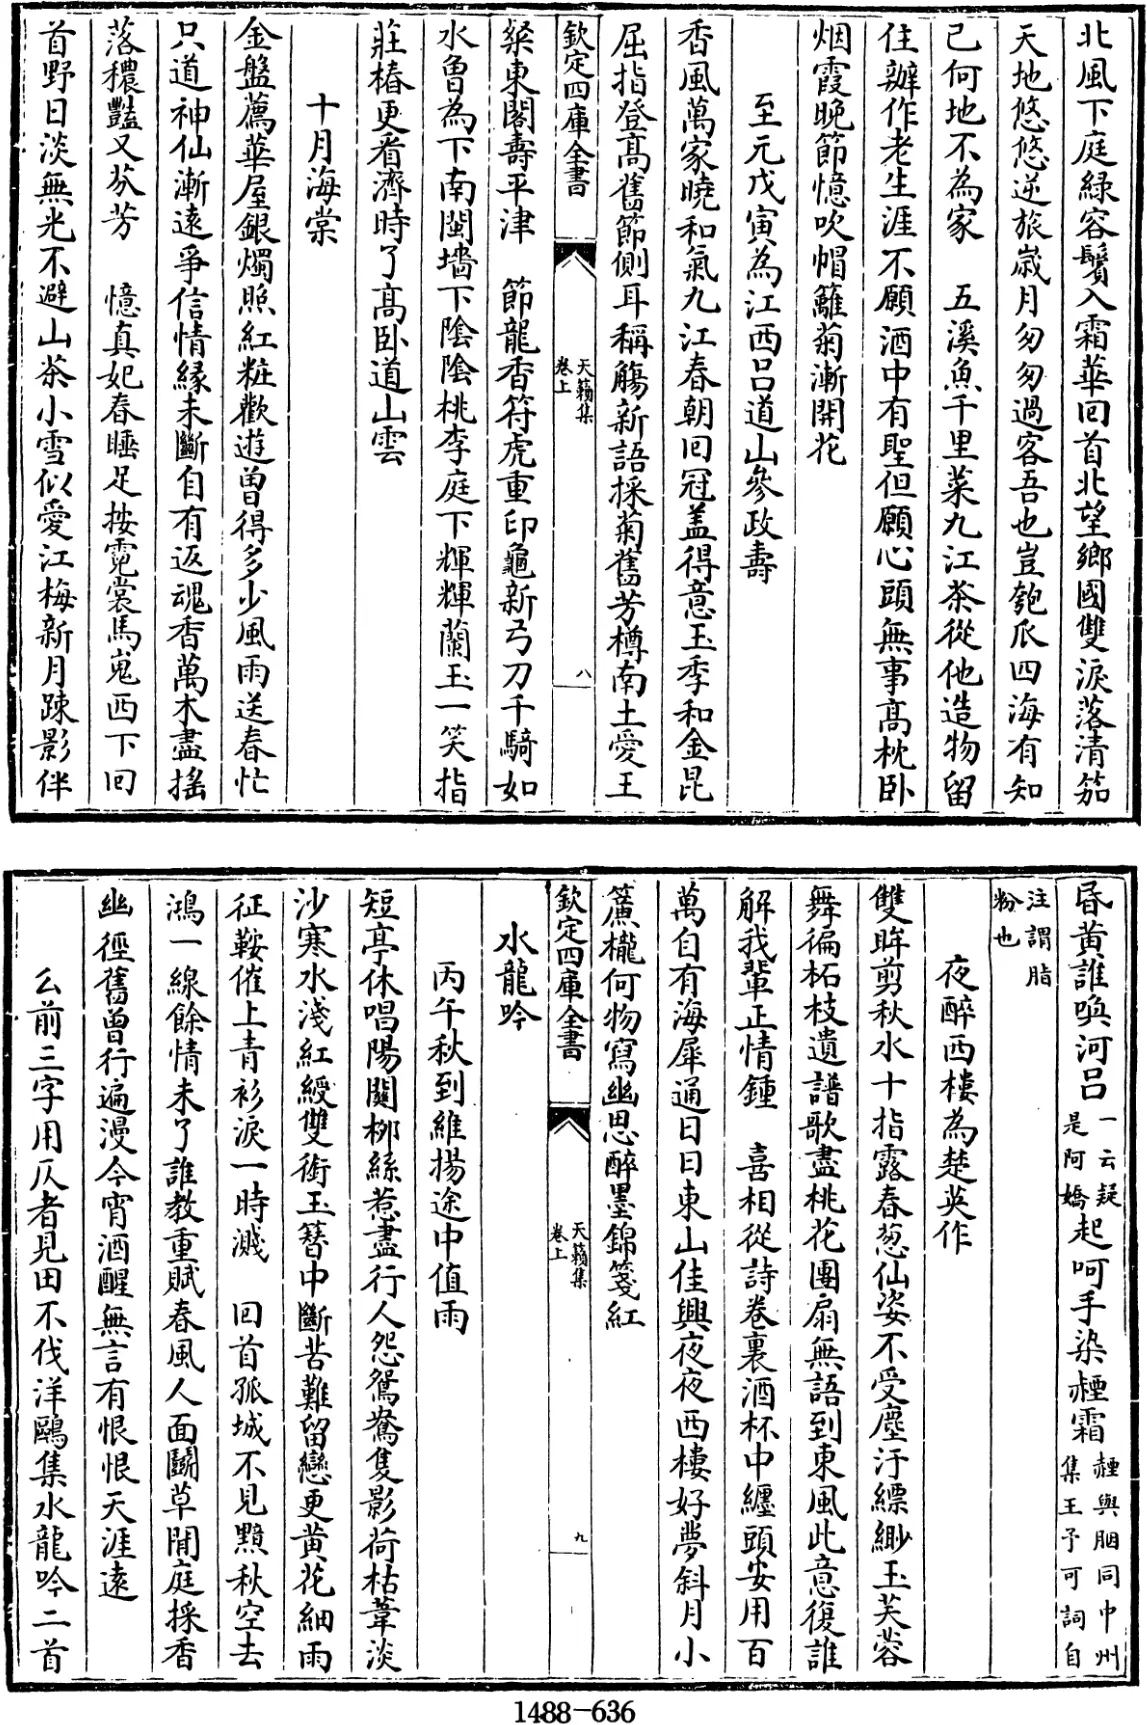 北風下庭綠容鬢入霜華回首北望鄉國雙淚落清笳
天地悠悠逆旅歲月匆匆過客吾也豈匏瓜四海有知
己何地不為家　五溪魚千里菜九江茶從他造物留
住辦作老生涯不願酒中有聖但願心頭無事高枕卧
烟霞晚節憶吹帽籬菊漸開花
至元戊寅為江西呂道山參政壽
香風萬家曉和氣九江春朝回冠盖得意玉季和金昆
屈指登高舊節側耳稱觴新語採菊舊芳樽南土愛王
欽定四庫全書
天籟集
卷上
八
粲東閣壽平津　節龍香符虎重印龜新弓刀千騎如
水魯為下南閩墻下陰陰桃李庭下輝輝蘭玉一笑指
莊椿更看濟時了高卧道山雲
十月海棠
金盤薦華屋銀燭照紅粧歡遊曽得多少風雨送春忙
只道神仙漸遠爭信情緣未斷自有返魂香萬木盡搖
落穠豔又芬芳　憶真妃春睡足按霓裳馬嵬西下回
首野日淡無光不避山茶小雪似愛江梅新月疎影伴
昏黃誰喚河呂一云疑是阿嬌起呵手染䞓霜䞓與胭同中州集王予可詞自
注謂脂粉也
夜醉西樓為楚英作
雙眸剪秋水十指露春葱仙姿不受塵汙縹緲玉芙蓉
舞徧柘枝遺譜歌盡桃花團扇無語到東風此意復誰
解我輩正情鍾　喜相從詩卷裏酒杯中纏頭安用百
萬自有海犀通日日東山佳興夜夜西樓好夢斜月小
簾櫳何物寫幽思醉墨錦箋紅
欽定四庫全書
天籟集
卷上
九
水龍吟
丙午秋到維揚途中值雨
短亭休唱陽關柳絲惹盡行人怨鴛鴦隻影荷枯葦淡
沙寒水淺紅綬雙銜玉簪中斷苦難留戀更黃花細雨
征鞍催上青衫淚一時濺　回首孤城不見黯秋空去
鴻一線餘情未了誰教重賦春風人面鬭草閒庭採香
幽徑舊曽行遍漫今宵酒醒無言有恨恨天涯遠
么前三字用仄者見田不伐洋鷗集水龍吟二首
1488-636